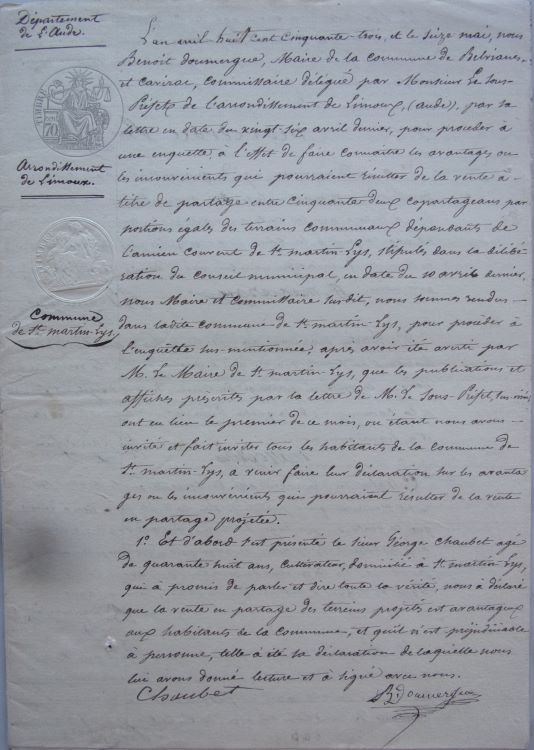 Département
de l'Aude.
TIMBRE
70
Arrondissement
de Limoux.
Commune
de St. martin-Lys,
L'an mil huit cent cinquante-trois, et le seize mai, nous
Benoît doumergue, Maire de la commune de Belvianes-
et Cavirac, Commissaire délégué par Monsieur Le Sous-
Préfet de l'arrondissement de Limoux, (aude), par sa
lettre en date du vingt-six avril dernier, pour procéder à
une enquette à l'effet de faire connaître les avantages ou
les inconvénients qui pourraient résulter de la vente à-
titre de partage entre cinquante deux copartageans par
portions égales des terrains communaux dépendants de
l'ancien couvent de St. martin-Lys, stipulés dans la délibé-
ration du Conseil municipal, en date du 10 avril dernier,
nous Maire et Commissaire susdit, nous sommes rendus-
dans ladite commune de St. martin-Lys, pour procéder à
l'enquette sus-mentionnée, après avoir été averti par
M. Le Maire de St. martin-Lys, que les publications et
affiches préscrites par la lettre de M. le Sous-Préfet,
ont eu lieu le premier de ce mois, ou étant nous avons-
invité et fait inviter tous les habitants de la commune de
St. martin-Lys, à venir faire leur déclaration sur les avanta-
ges ou les inconvénients qui pourraient résulter de la vente
en partage projetée.
1o. Et d'abord s'est présenté le sieur George Chaubet agé
de quarante huit ans, cultivateur, domicilié à St. martin-Lys,
qui a promis de parler et dire toute la vérité, nous a déclaré
que la vente en partage des terreins projetés est avantageux
aux habitants de la commune, et qu'il n'est préjudiciable
à personne, telle a été sa déclaration de laquelle nous
lui avons donné lecture et a signé avec nous.
Chaubet
B. Doumergue